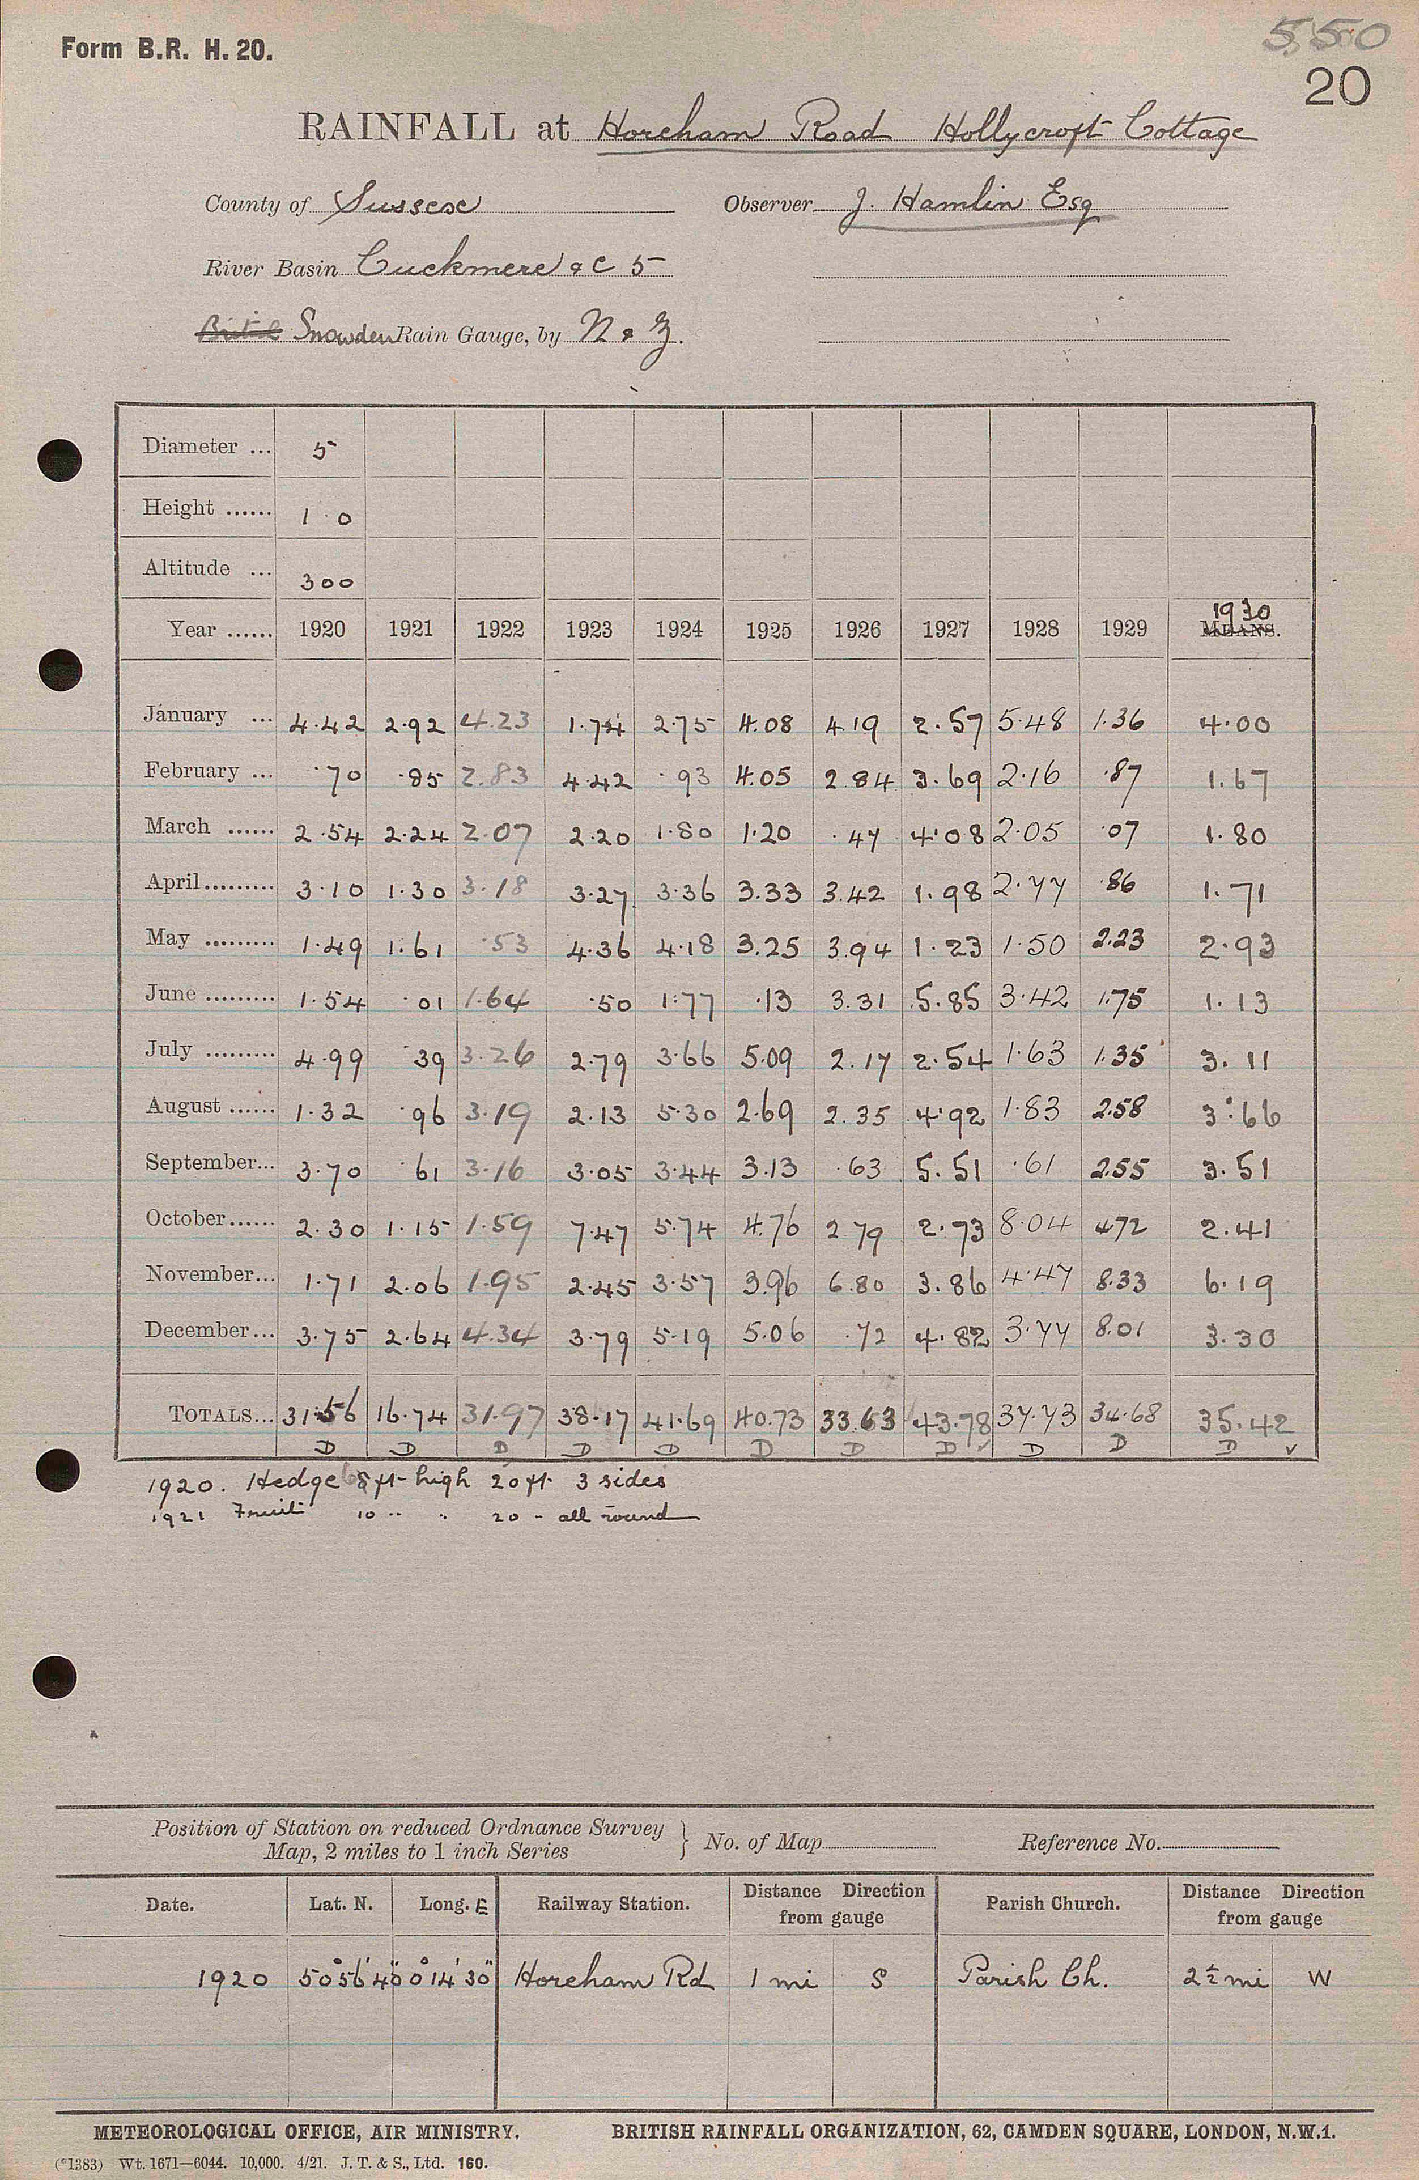 550
Form B.R. H. 20.
20
RAINFALL at Horeham Road Hollycroft Cottage
County of Sussex Observer J. Hamlin Esq
River Basin Cuckmere &c 5
Snowden Rain Gauge, by N & Z.
Diameter ... 5
Height ...... 1 0
Altitude ... 300
1930
Year ...... 1920 1921 1922 1923 1924 1925 1926 1927 1928 1929 MEANS.
January ... 4.42 2.92 4.23 1.74 2.75 4.08 4 19 2.57 5.48 1.36 4.00
February ... .70 .85 2.83 4.42 .93 4.05 2.84 3.69 2.16 .87 1.67
March ...... 2.54 2.24 2.07 2.20 1.80 1.20 .47 4.08 2.05 .07 1.80
April......... 3.10 1.30 3.18 3.27 3.36 3.33 3.42 1.98 2.77 .86 1.71
May ......... 1.49 1.61 .53 4.36 4.18 3.25 3.94 1.23 1.50 2.23 2.93
June ......... 1.54 .01 1.64 .50 1.77 .13 3.31 5.85 3.42 1.75 1.13
July ......... 4.99 .39 3.26 2.79 3.66 5.09 2.17 2.54 1.63 1.35 3.11
August ...... 1.32 .96 3.19 2.13 5.30 2.69 2.35 4.92 1.83 2.58 3.66
September... 3.70 .61 3.16 3.05 3.44 3.13 .63 5.51 .61 2.55 3.51
October...... 2.30 1.15 1.59 7.47 5.74 4.76 2 79 2.73 8.04 4.72 2.41
November... 1.71 2.06 1.95 2.45 3.57 3.96 6.80 3.86 4.47 8.33 6.19
December... 3.75 2.64 4.34 3.79 5.19 5.06 .72 4.82 3.77 8.01 3.30
TOTALS... 31.56 16.74 31.97 38.17 41.69 40.73 33.63 43.78 37.73 34.68 35.42
D D D D D D D D ✓ D D D ✓
1920. Hedge 8 ft high 20 ft 3 sides
1921 Fruit 10 " " 20 - all round
Position of Station on reduced Ordnance Survey
Map, 2 miles to 1 inch Series } No. of Map Reference No.
Date. Lat. N. Long. E Railway Station. Distance Direction from gauge Parish Church. Distance Direction from gauge
1920 50°56'40" 0°14'30" Horeham Rd 1 mi S Parish Ch. 2½ mi W
METEOROLOGICAL OFFICE, AIR MINISTRY. BRITISH RAINFALL ORGANIZATION, 62, CAMDEN SQUARE, LONDON, N.W.1.
(*1383) Wt. 1671—6044. 10,000. 4/21. J. T. & S., Ltd. 160.